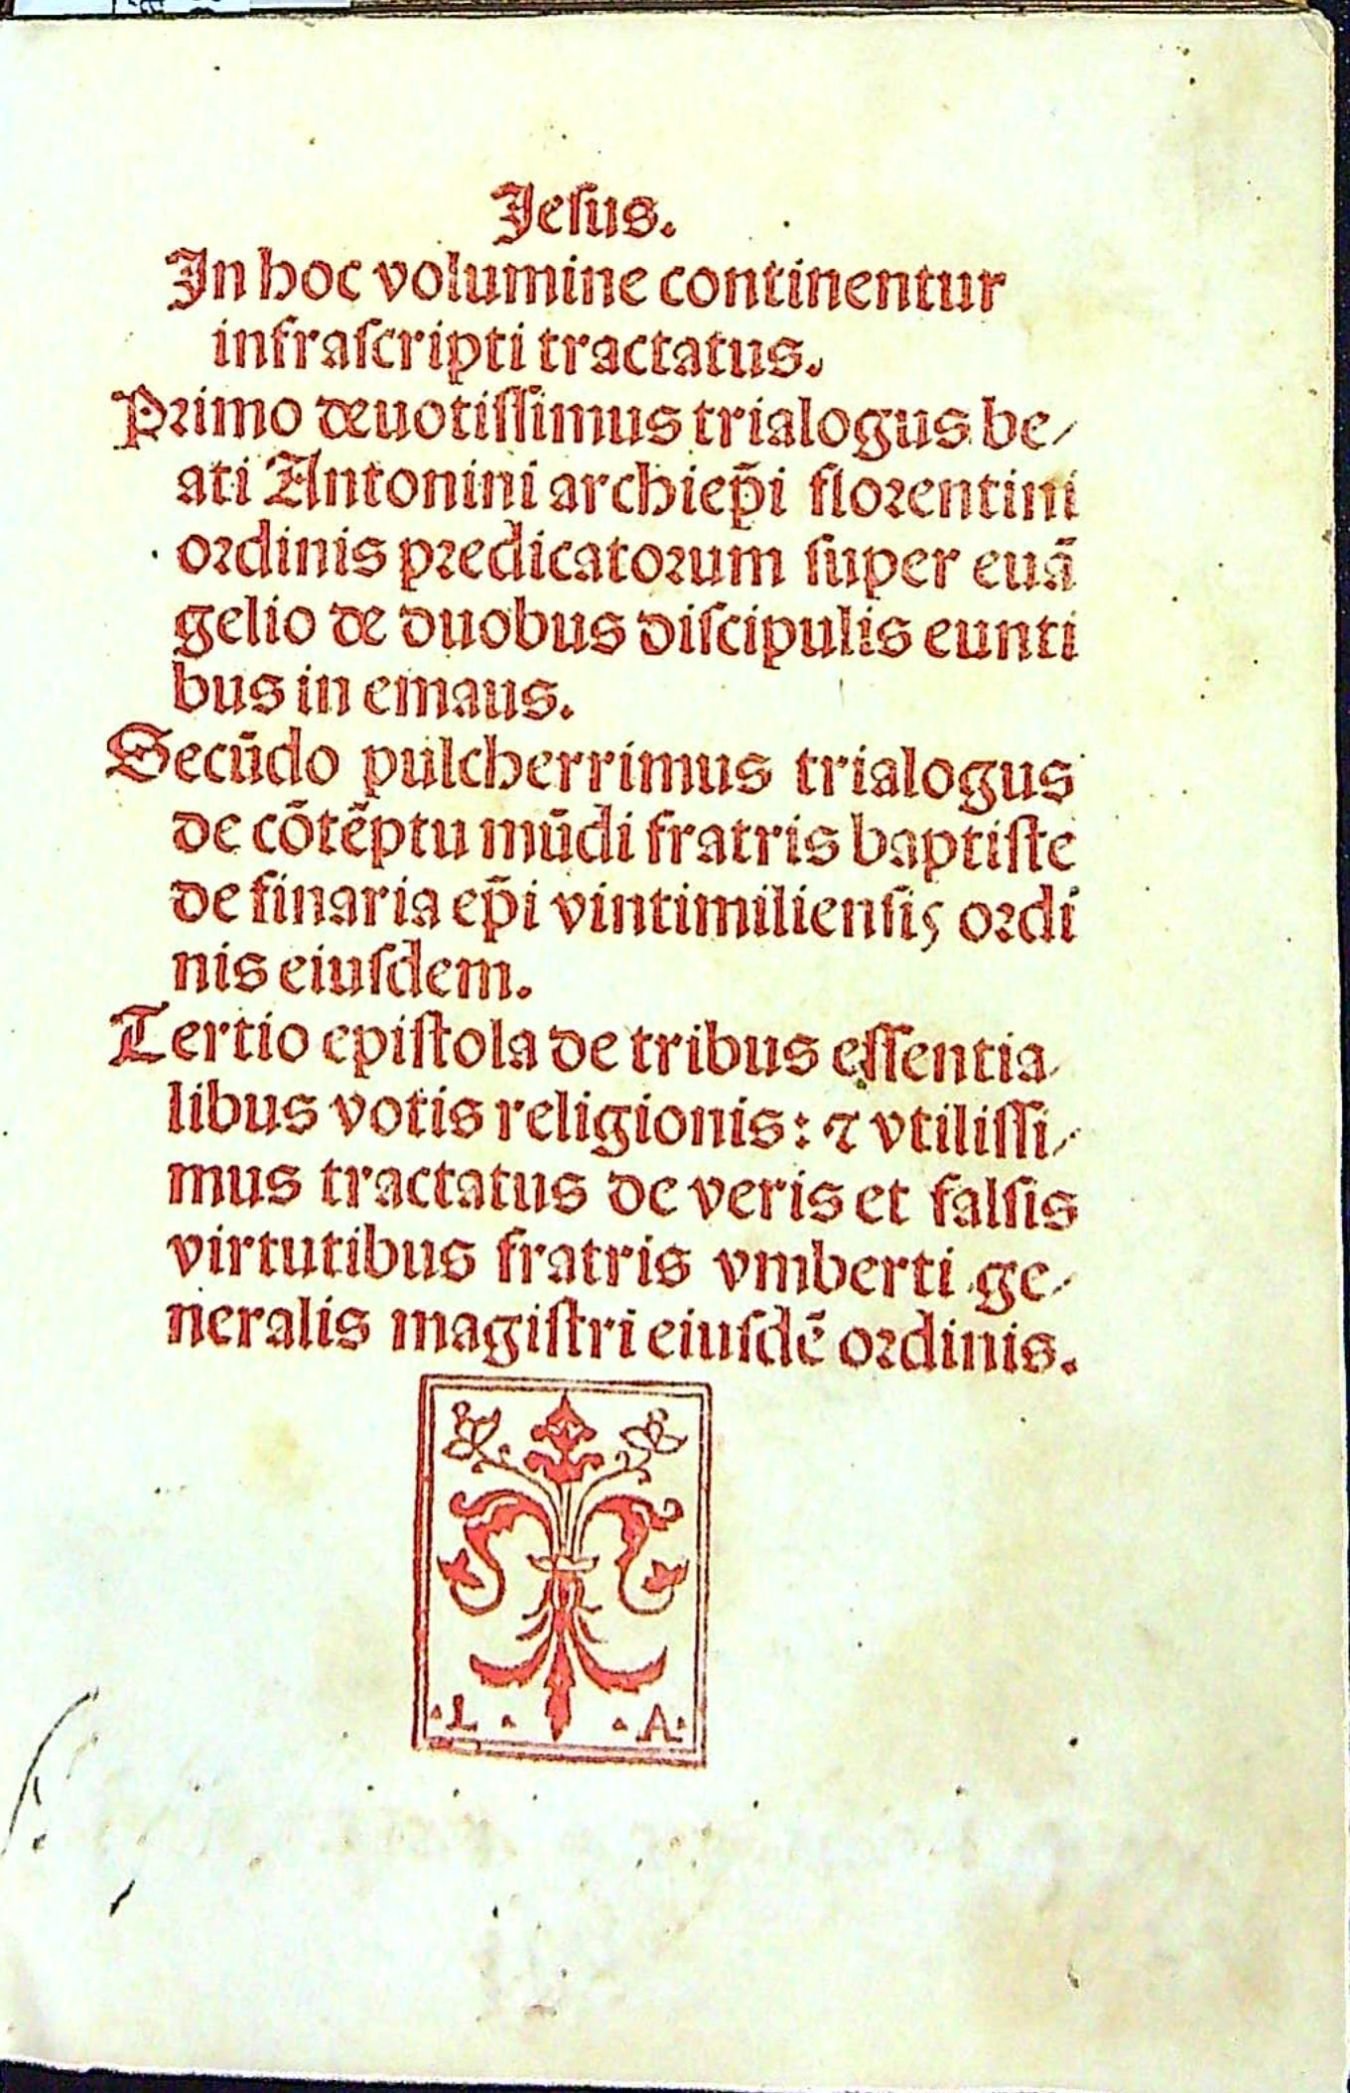 Jesus.
In hoc volumine continentur
infrascripti tractatus.
Primo deuotissimus trialogus be/
ati Antonini archiep̄i florentini
ordinis predicatorum super euā
gelio de duobus discipulis eunti
bus in emaus.
Secūdo pulcherrimus trialogus
de cōtēptu mūdi fratris baptiste
de finaria ep̄i vintimiliensis ordi
nis eiusdem.
Tertio epistola de tribus essentia/
libus votis religionis: ⁊ vtilissi/
mus tractatus de veris et falsis
virtutibus fratris vmberti ge/
neralis magistri eiusdē ordinis.
.L. .A.